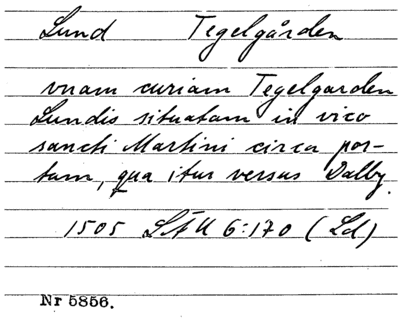 Lund Tegelgården
vnam curiam Tegelgarden
Lundis situatam in vico
sancti Martini circa por-
tam, qua itur versus Dalby.
1505 LÄU 6:170 (Ld)
Nr 5856.